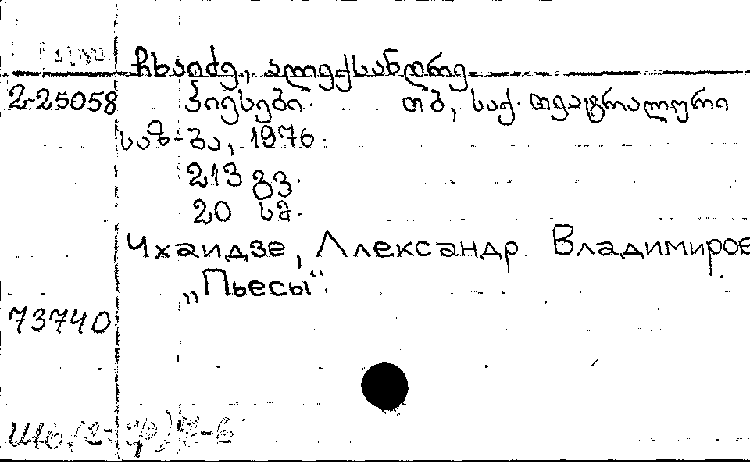 ჩხაიძე, ალექსანდრე
2-25058 პიესები. თბ, საქ. თეატრალური
საზ-ბა, 1976.
213 გვ.
20 სმ.
Чхаидзе, Александр Владимиров
„Пьесы“.
73740